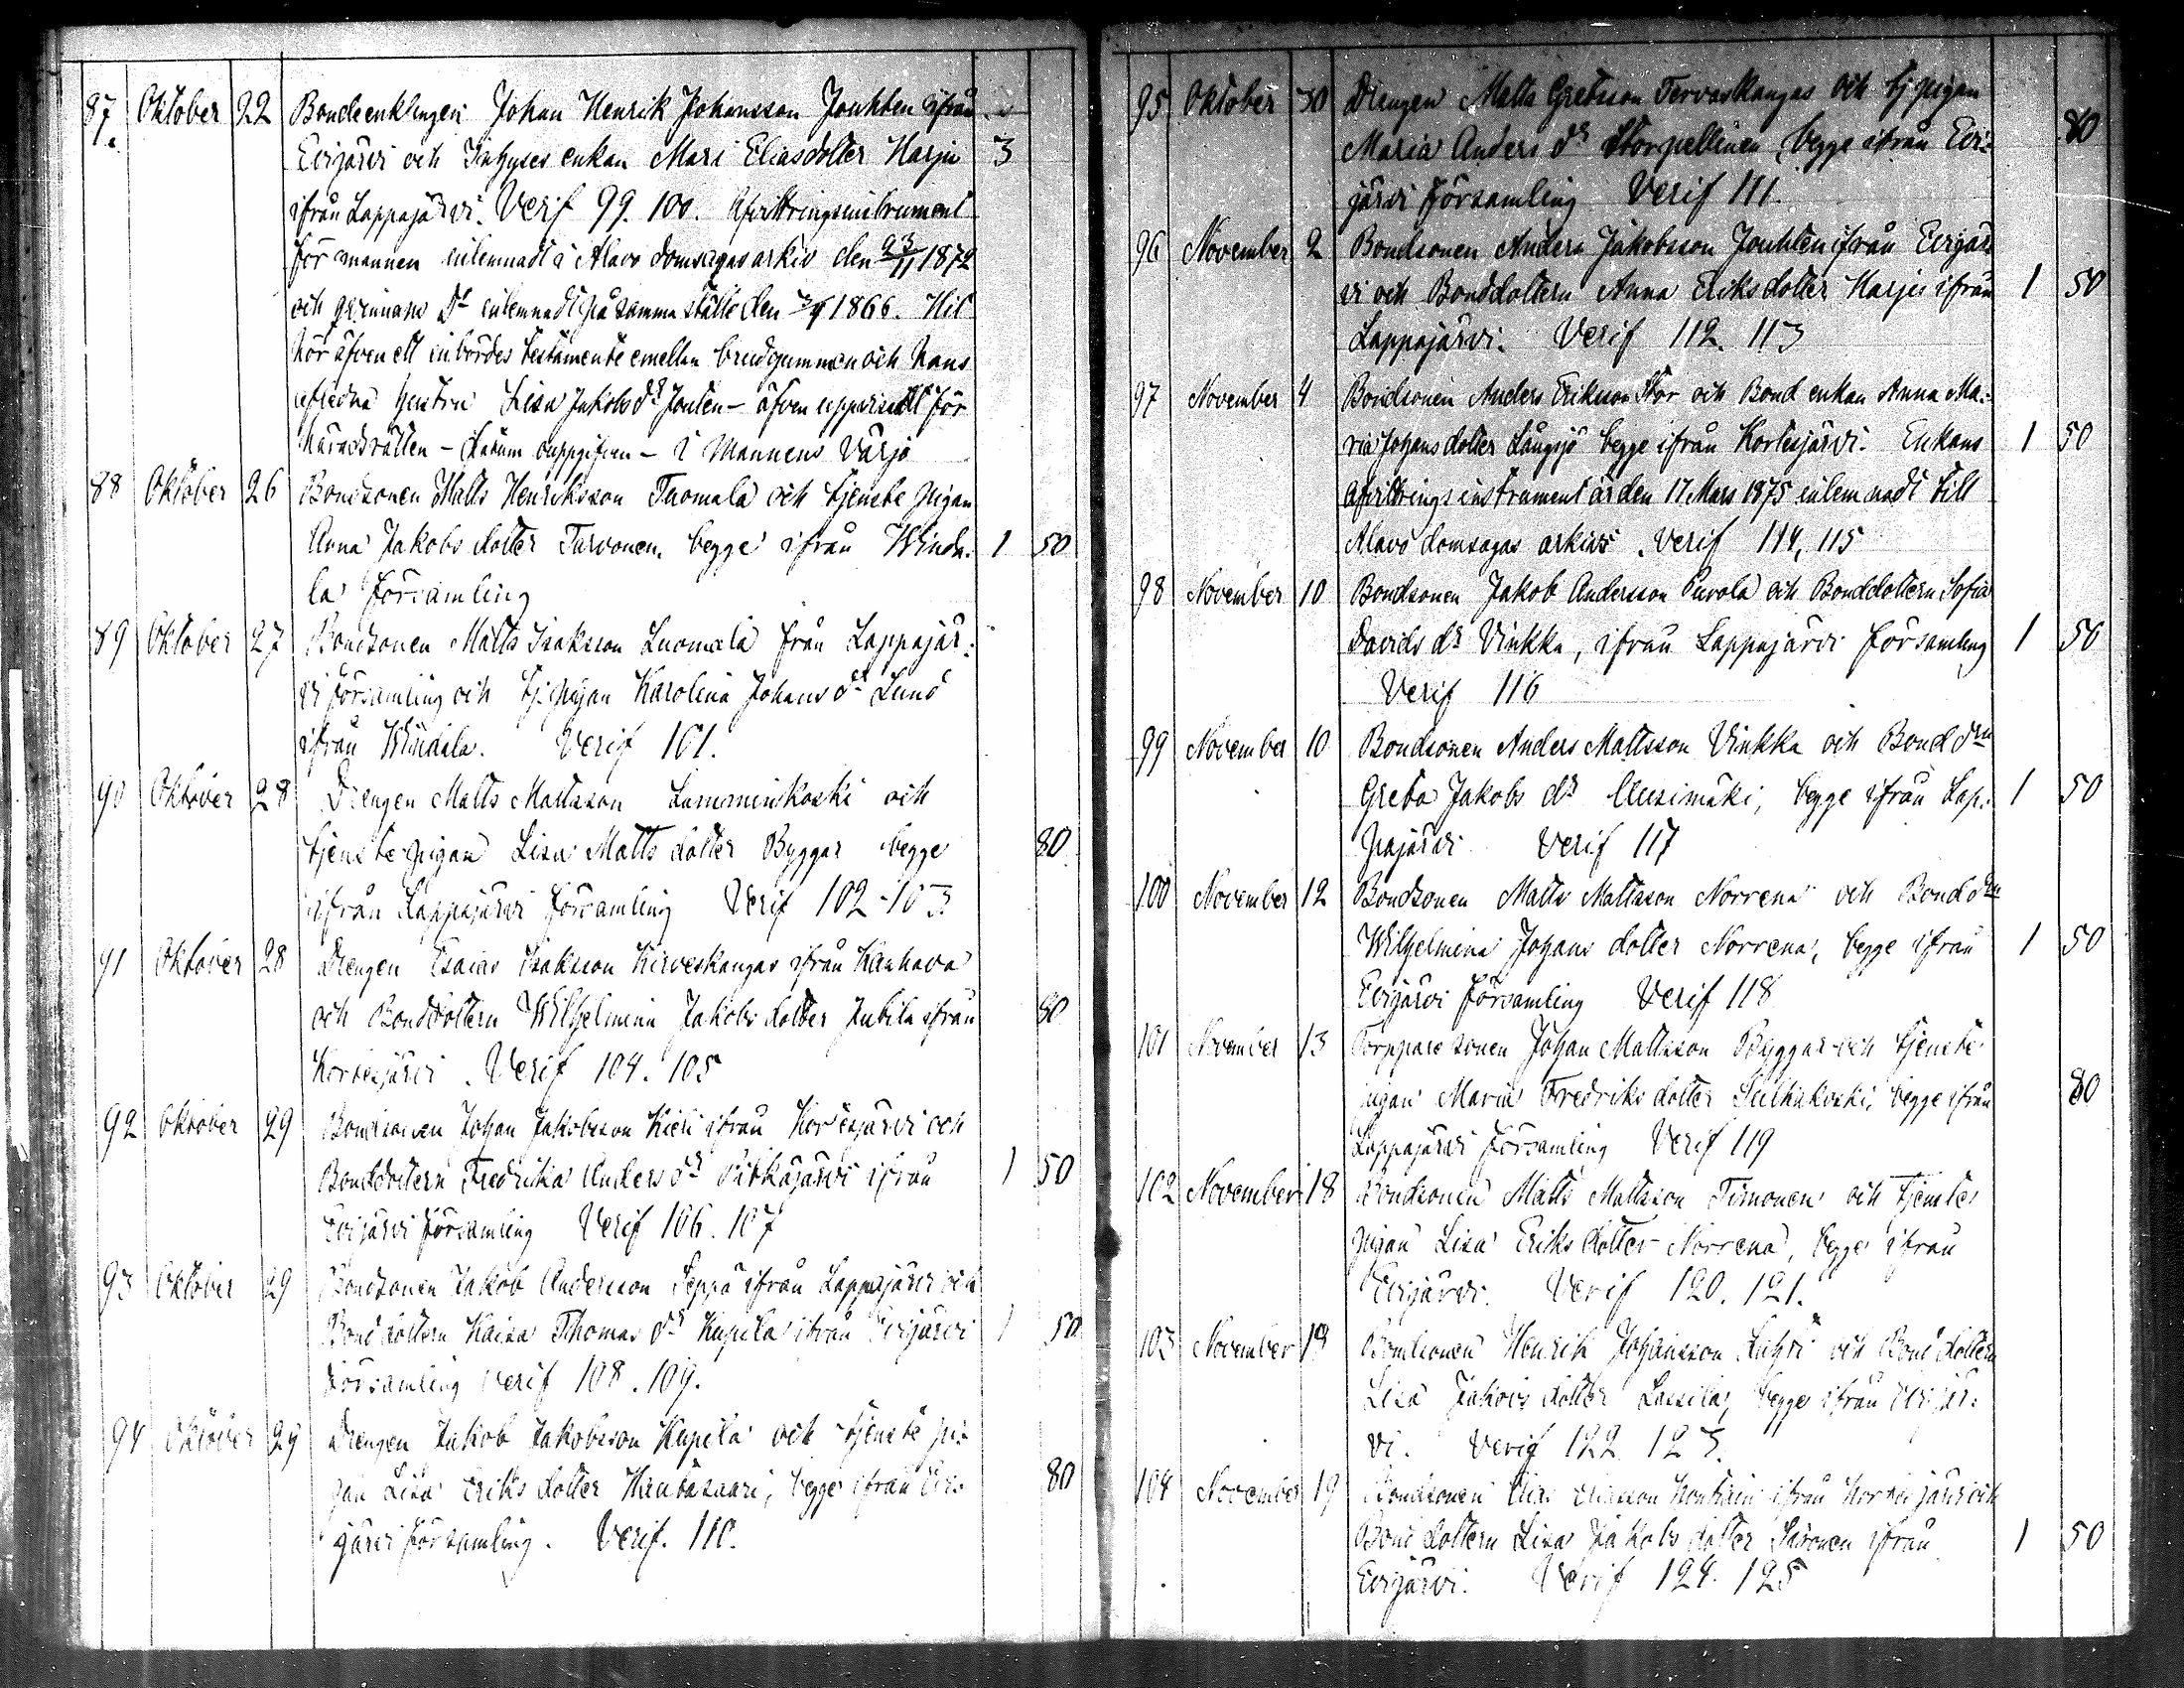 87. Oktober 22 Bondeenklingen Johan Henrik Johansson Jouhten ifrån
Evijärvi och Inhyses enkan Mari Eliasdotter Harju 3
ifrån Lappajärvi. Verif 99. 100. Afvittringsinstrument
för mannen inlemnadt i Alavo domsagas arkiv den 23/11 1872
och qvinnans Do inlemnadt på samma ställe den 1866. Hit
hör äfven ett inbördes testamente emellan brudgummen och hans
aflidna hustru Lisa Jakobs dr Jouten – äfven uppvisadt för
häradsrätten – datum ouppgifven – i Mannens värjo
88 Oktober 26 Bondsonen Matts Henriksson Tuomala och tjenste pigan
Anna Jakobs dotter Tarvonen, begge ifrån Winda- 1 50
la församling
89 Oktober 27 Bondsonen Matts Isaksson Luomala från Lappajär-
vi församling och tj. pigan Karolina Johans dr Lund
ifrån Windala. Verif 101.
90 Oktober 28 Drengen Matts Mattsson Lamminkoski och
tjenste pigan Lisa Matts dotter Byggar begge 80
ifrån Lappajärvi församling Verif 102-103
91 Oktober 28 Drengen Esaias Isaksson Kirveskangas ifrån Kauhava
och Bonddottern Wilhelmina Jakobs dotter Jubila ifrån 80
Kortesjärvi. Verif 104. 105
92 Oktober 29 Bondsonen Johan Jakobsson Kieli ifrån Kortesjärvi och
Bonddottern Fredrika Anders dr Pitkäjärvi ifrån 1 50
Evijärvi församling Verif 106. 107
93 Oktober 29 Bondsonen Jakob Andersson Seppä ifrån Lappajärvi och
Bond dottern Kaisa Thomas dr Kupila ifrån Evijärvi 1 50
församling verif 108. 109.
94 Oktober 29 Drengen Jakob Jakobsson Kupila och tjenste pi-
gan Lisa Eriks dotter Hautasaari, begge ifrån Evi- 80
järvi församling. Verif. 110.
95 Oktober 30 Drengen Matts Gretsson Tervaskangas och tj pigan
Maria Anders dr Storpellinen, begge ifrån Evi- 80
järvi församling Verif 111.
96 November 2 Bondsonen Anders Jakobsson Jouhten ifrån Evijär-
vi och Bonddottern Anna Eriksdotter Harju ifrån 1 50
Lappajärvi. Verif 112. 113
97 November 4 Bondsonen Anders Eriksson Stor och Bond enkan Anna Ma-
ria Johansdotter Långsjö begge ifrån Kortesjärvi. Enkans 1 50
afvittrings instrument är den 17 Mars 1875 inlemnadt till
Alavo domsagas arkiv. Verif 114, 115
98 November 10 Bondsonen Jakob Andersson Puvola och Bonddottern Sofia
Davids dr Vinkka, ifrån Lappajärvi församling 1 50
Verif 116
99 November 10 Bondsonen Anders Mattsson Vinkka och Bond drn
Greta Jakobs dr Uusimäki, begge ifrån Lap- 1 50
pajärvi Verif 117
100 November 12 Bondsonen Matts Mattsson Norrena och Bond drn
Wilhelmina Johans dotter Norrena, begge ifrån 1 50
Evijärvi församling Verif 118
101 November 13 Torppare sonen Johan Mattsson Byggar och tjenste
pigan Maria Fredriks dotter Sulhakoski, begge ifrån 80
Lappajärvi församling Verif 119
102 November 18 Bondsonen Matts Mattsson Timonen och tjenste
pigan Lisa Eriks dotter Norrena, begge ifrån
Evijärvi. Verif 120. 121.
103 November 19 Bondsonen Henrik Johansson och Bond dottern
Lisa Jakobs dotter Lassila, begge ifrån Evijär-
vi. Verif 122 123.
104 November 19 Bondsonen Elias Eliasson ifrån Kortesjärvi och
Bond dottern Lisa Jakobs dotter ifrån 1 50
Evijärvi. Verif 124. 125